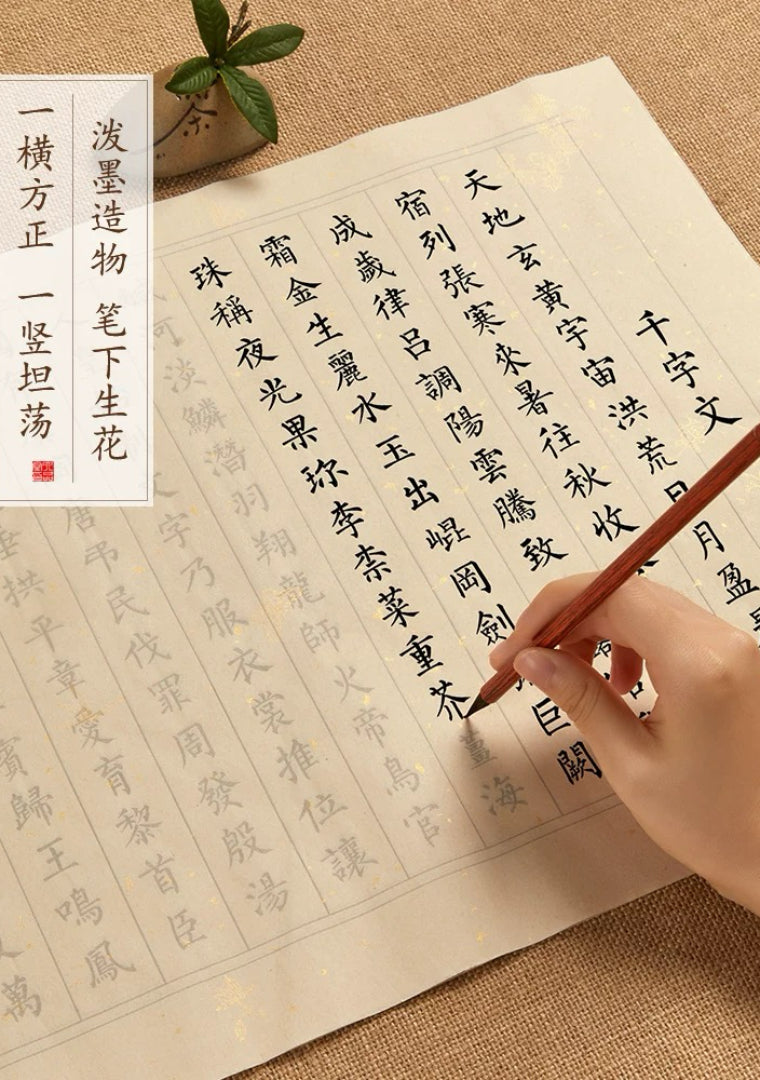 泼墨造物 笔下生花
一横方正 一竖坦荡
千字文
天地玄黄宇宙洪荒日月盈
宿列張寒來暑往秋收
成歲律呂調陽雲騰致
霜金生麗水玉出崐岡劍巨闕
珠稱夜光果珎李柰菜重芥薑海
河淡鱗潛羽翔龍師火帝鳥官
文字乃服衣裳推位讓
唐弔民伐罪周發殷湯
垂拱平章愛育黎首臣
賓歸王鳴鳳
萬